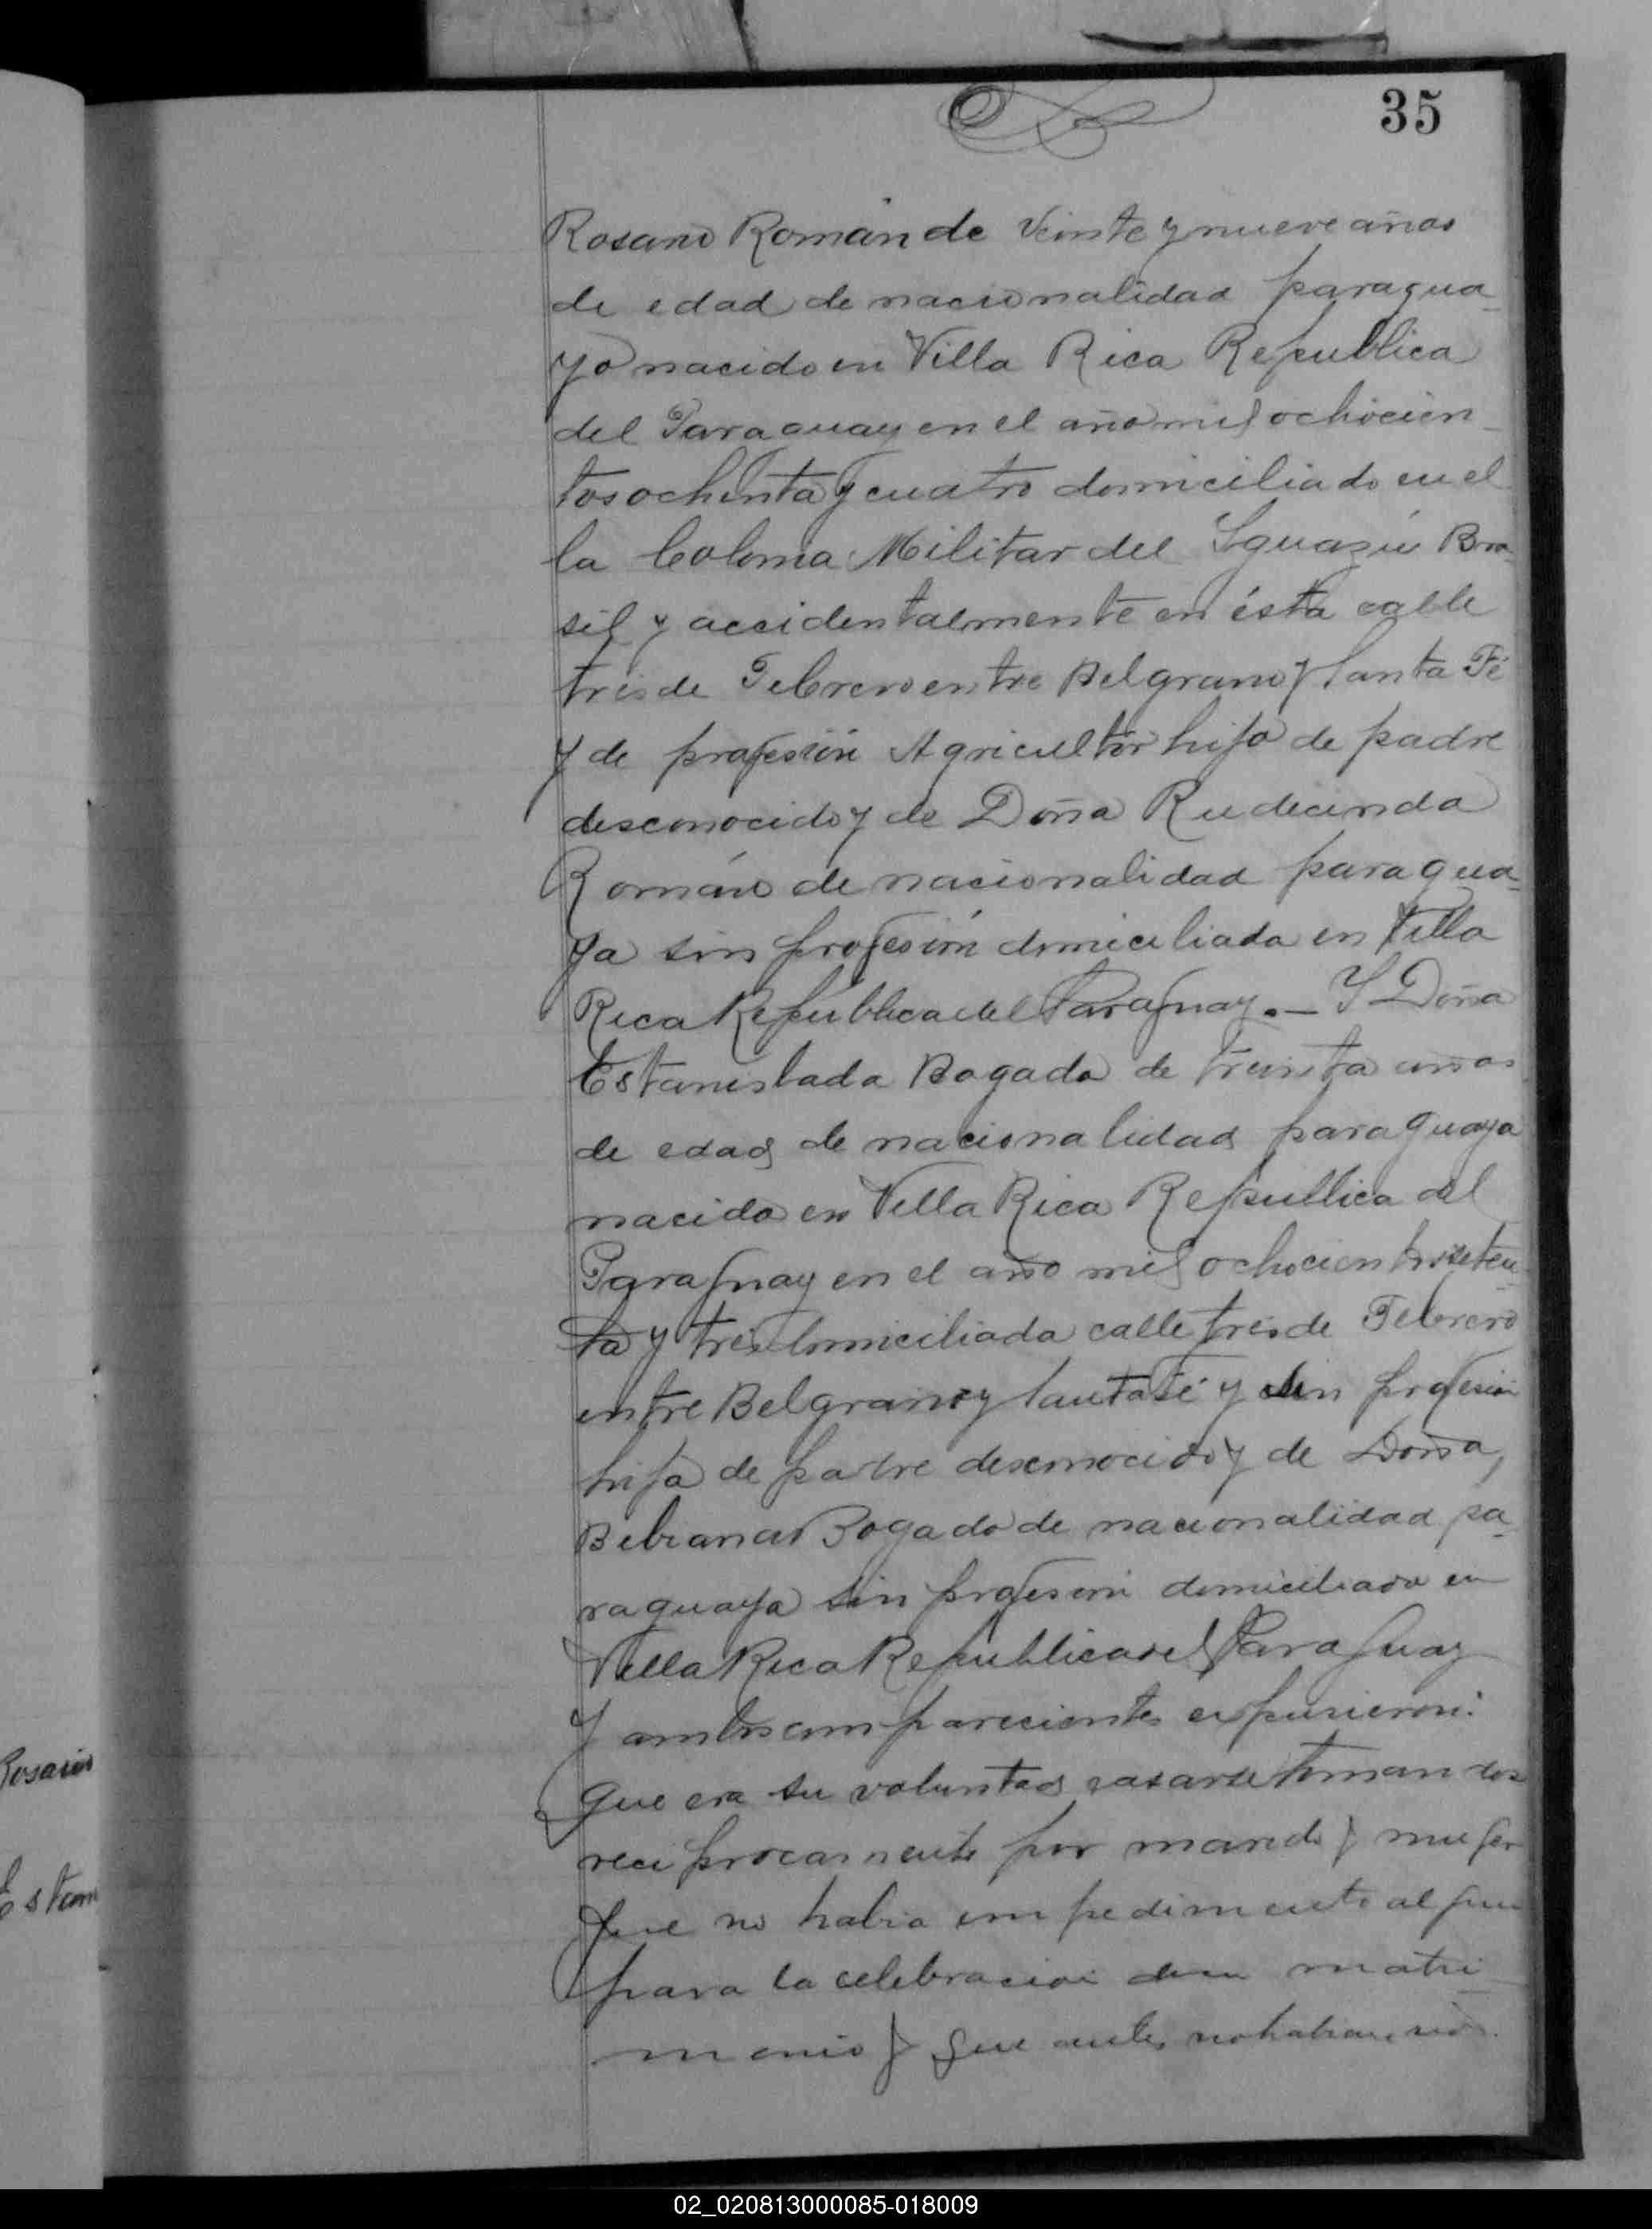 35
Rosario Román de Veinte y nueve años
de edad de nacionalidad paragua-
yo nacido en Villa Rica Republica
del Paraguay en el año mil ochocien-
tos ochenta y cuatro domiciliado en el
la Colonia Militar del Iguazú Bra-
sil y accidentalmente en ésta calle
tres de Febrero entre Belgrano y Santa Fé
y de profesión Agricultor hijo de padre
desconocido y de Doña Rudecinda
Román de nacionalidad paragua-
ya sin profesión domiciliada en Villa
Rica República del Paraguay. — Y Doña
Estanislada Bogado de treinta años
de edad de nacionalidad paraguaya
nacida en Villa Rica Republica del
Paraguay en el año mil ochocientos seten-
ta y tres domiciliada calle tres de Febrero
entre Belgrano y Santa Fé y sin profesión
hija de padre desconocido y de Doña,
Bibiana Bogado de nacionalidad pa-
raguaya sin profesión domiciliada en
Villa Rica Republica del Paraguay
Y ambos comparecientes expusieron:
Que era su voluntad casarse tomandose
reciprocamente por marido y mujer
Que no habia impedimento algun
para la celebración de su matri-
monio y que antes no habian sido
Rosario
Estani
02_020813000085-018009